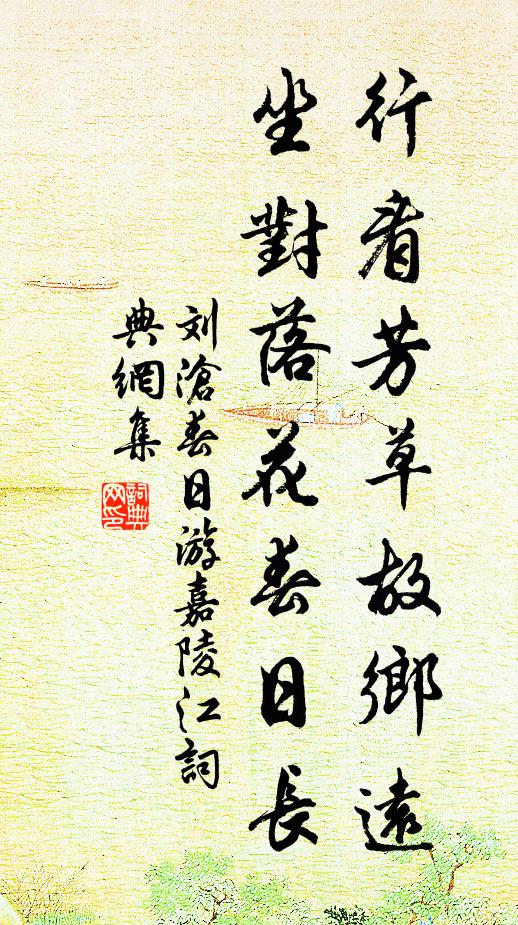 行看芳草故鄉遠
坐對落花春日長
刘滄春日游嘉陵江詞
典網集
詞典
网印